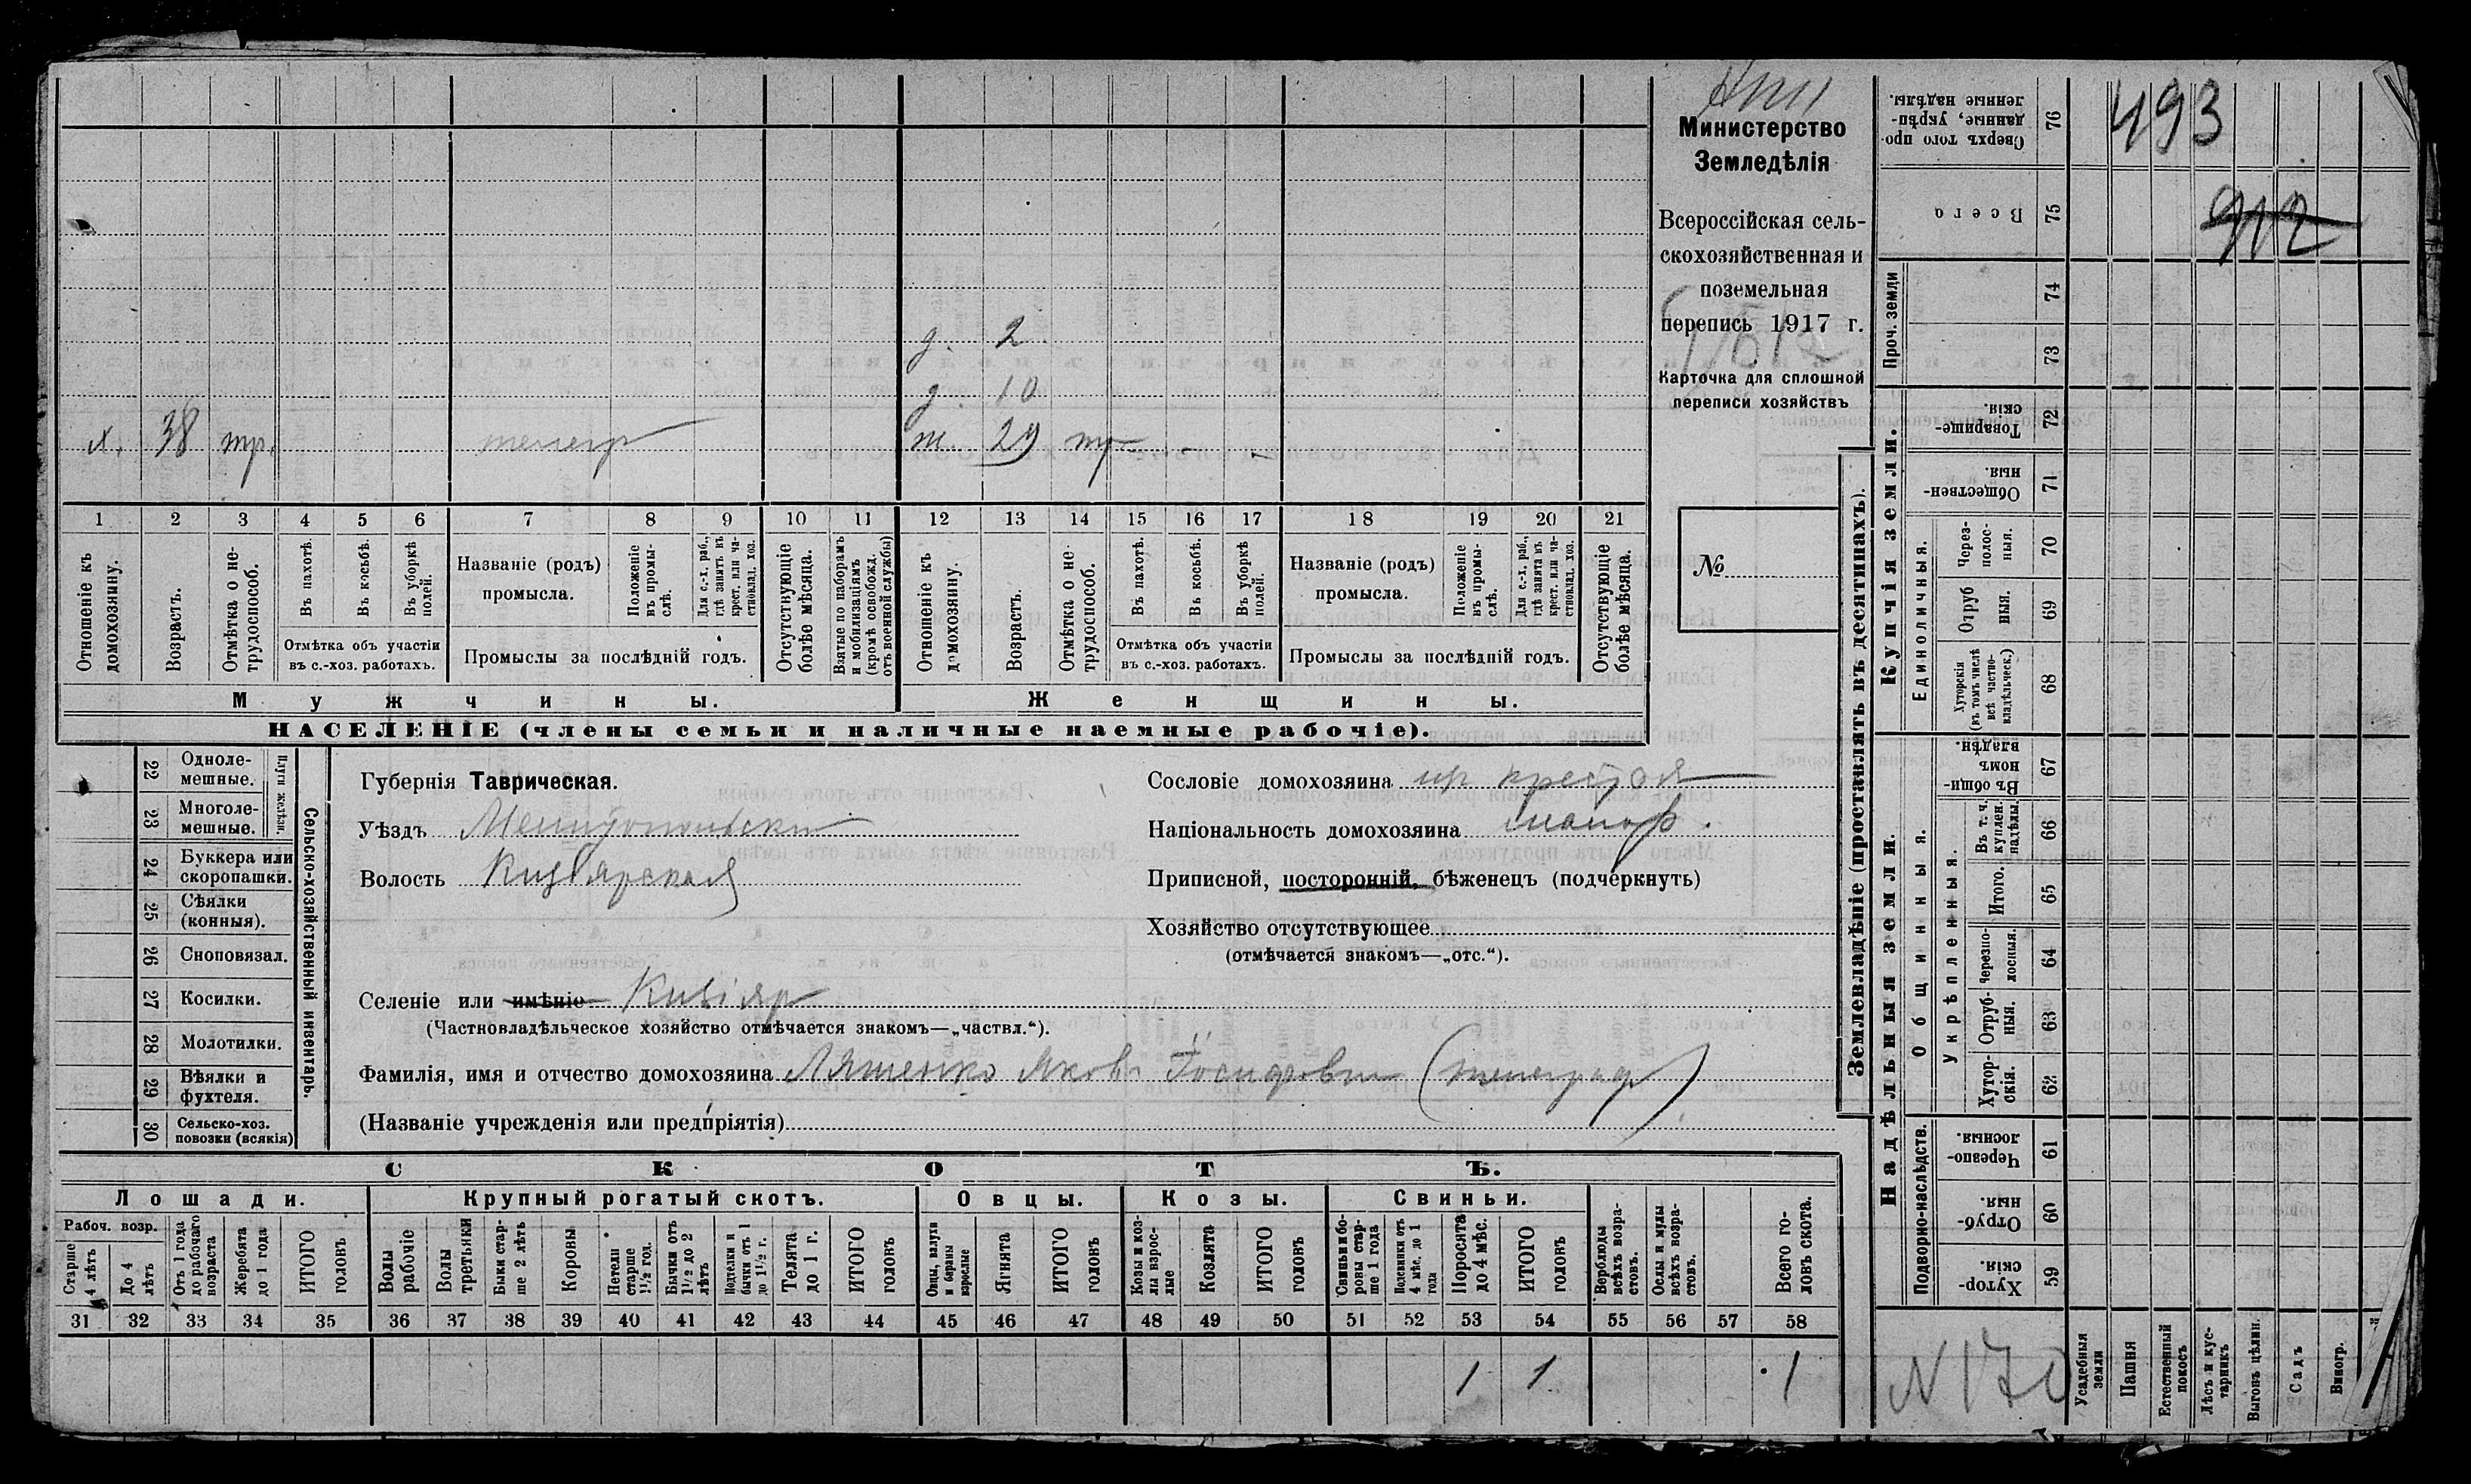 493
912
Министерство
Земледѣлія
Всероссійская сель-
скохозяйственная и
поземельная
перепись 1917 г.
Карточка для сплошной
переписи хозяйствъ
№
д. 2
д. 10
х. 38 тр. телегр ж. 29 тр
1 2 3 4 5 6 7 8 9 10 11 12 13 14 15 16 17 18 19 20 21
Отношеніе къ домохозяину.
Возрастъ.
Отмѣтка о не-трудоспособ.
Въ пахотѣ.
Въ косьбѣ.
Въ уборкѣ полей.
Отмѣтка объ участіи
въ с.-хоз. работахъ.
Названіе (родъ)
промысла.
Положеніе въ промы-слѣ.
Для с.-х. раб., гдѣ занятъ въ крест. или ча-стновлад. хоз.
Промыслы за послѣдній годъ.
Отсутствующіе болѣе мѣсяца.
Взятые по наборамъ и мобилизаціямъ (кромѣ освобожд. отъ военной службы)
Отношеніе къ домохозяину.
Возрастъ.
Отмѣтка о не-трудоспособ.
Въ пахотѣ.
Въ косьбѣ.
Въ уборкѣ полей.
Отмѣтка объ участіи
въ с.-хоз. работахъ.
Названіе (родъ)
промысла.
Положеніе въ промы-слѣ.
Для с.-х. раб., гдѣ занята въ крест. или ча-стновлад. хоз.
Промыслы за послѣдній годъ.
Отсутствующіе болѣе мѣсяца.
Мужчины. Женщины.
НАСЕЛЕНІЕ (члены семьи и наличные наемные рабочіе).
Сельско-хозяйственный инвентарь.
Плуги желѣзн.
22 Одноле-мешные.
23 Многоле-мешные.
24 Буккера или скоропашки.
25 Сѣялки (конныя).
26 Сноповязал.
27 Косилки.
28 Молотилки.
29 Вѣялки и фухтеля.
30 Сельско-хоз. повозки (всякія)
Губернія Таврическая.
Уѣздъ Мелитопольскій
Волость Кизіярская
Сословіе домохозяина
Національность домохозяина малор.
Приписной, посторонній, бѣженецъ (подчеркнуть)
Хозяйство отсутствующее
(отмѣчается знакомъ—„отс.“).
Селеніе или имѣніе Кизіяр
(Частновладѣльческое хозяйство отмѣчается знакомъ—„частвл.“).
Фамилія, имя и отчество домохозяина Ляшенко Яков (телеграф)
(Названіе учрежденія или предпріятія)
СКОТЪ.
Лошади. Крупный рогатый скотъ. Овцы. Козы. Свиньи.
Рабоч. возр.
Старше 4 лѣтъ
До 4 лѣтъ
Отъ 1 года до рабочаго возраста
Жеребята до 1 года
ИТОГО головъ
Волы рабочіе
Волы третьяки
Быки стар-ше 2 лѣтъ
Коровы
Нетели старше 1½ год.
Бычки отъ 1½ до 2 лѣтъ
Подтелки и бычки отъ 1 до 1½ г.
Телята до 1 г.
ИТОГО головъ
Овцы, валухи и бараны взрослые
Ягнята
ИТОГО головъ
Козы и коз-лы взрос-лые
Козлята
ИТОГО головъ
Свиньи и бо-ровы стар-ше 1 года
Подсвинки отъ 4 мѣс. до 1 года
Поросята до 4 мѣс.
ИТОГО головъ
Верблюды всѣхъ возра-стовъ.
Ослы и мулы всѣхъ возра-стовъ.
Всего го-ловъ скота.
31 32 33 34 35 36 37 38 39 40 41 42 43 44 45 46 47 48 49 50 51 52 53 54 55 56 57 58
1 1 1
Землевладѣніе (проставлять въ десятинахъ).
Купчія земли.
Сверхъ того про-данные, укрѣп-ленные надѣлы. 76
Всего 75
Проч. земли
74
73
Товарище-скія. 72
Обществен-ныя. 71
Единоличныя.
Через-полос-ныя. 70
Отруб ныя. 69
Хуторскія (въ томъ числѣ всѣ частно-владѣльческ.) 68
Надѣльныя земли.
Общинныя.
Въ общи-номъ владѣн. 67
Укрѣпленныя.
Въ т. ч. куплен. надѣлы. 66
Итого. 65
Черезпо-лосныя. 64
Отруб-ныя. 63
Хутор-скія. 62
Подворно-наслѣдств.
Черезпо-лосныя. 61
Отруб-ныя. 60
Хутор-скія. 59
N 170
Усадебныя земли
Пашня
Естественный покосъ
Лѣсъ и кус-тарникъ
Выгонъ цѣлин.
Садъ
Виногр.